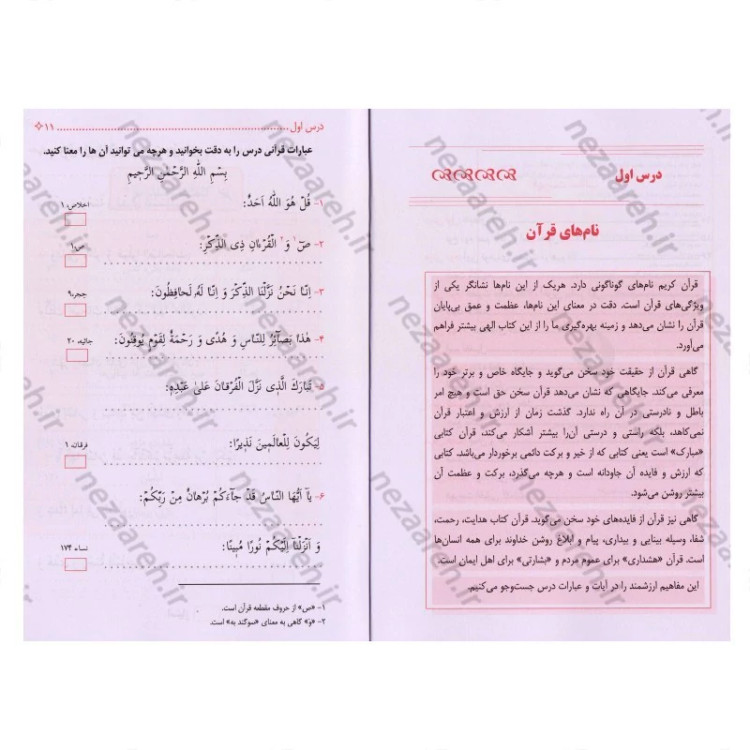 درس اول
نام‌های قرآن
قرآن کریم نام‌های گوناگونی دارد. هریک از این نام‌ها نشانگر یکی از
ویژگی‌های قرآن است. دقت در معنای این نام‌ها، عظمت و عمق بی‌پایان
قرآن را نشان می‌دهد و زمینه بهره‌گیری ما را از این کتاب الهی بیشتر فراهم
می‌آورد.
گاهی قرآن از حقیقت خود سخن می‌گوید و جایگاه خاص و برتر خود را
معرفی می‌کند. جایگاهی که نشان می‌دهد قرآن سخن حق است و هیچ امر
باطل و نادرستی در آن راه ندارد. گذشت زمان از ارزش و اعتبار قرآن
نمی‌کاهد، بلکه راستی و درستی آن‌را بیشتر آشکار می‌کند. قرآن کتابی
«مبارک» است یعنی کتابی که از خیر و برکت دائمی برخوردار می‌باشد. کتابی
که ارزش و فایده آن جاودانه است و هرچه می‌گذرد، برکت و عظمت آن
بیشتر روشن می‌شود.
گاهی نیز قرآن از فایده‌های خود سخن می‌گوید. قرآن کتاب هدایت، رحمت،
شفا، وسیله بینایی و بیداری، پیام و ابلاغ روشن خداوند برای همه انسان‌ها
است. قرآن «هشداری» برای عموم مردم و «بشارتی» برای اهل ایمان است.
این مفاهیم ارزشمند را در آیات و عبارات درس جست‌وجو می‌کنیم.
درس اول ........ ۱۱
عبارات قرآنی درس را به دقت بخوانید و هرچه می توانید آن ها را معنا کنید.
بِسْمِ اللّٰهِ الرَّحْمٰنِ الرَّحِیمِ
۱- قُلْ هُوَ اللّٰهُ اَحَدٌ: اخلاص: ۱
۲- صٓ ۱ وَ ۲ الْقُرْءَانِ ذِی الذِّکْرِ: ص: ۱
۳- اِنّا نَحْنُ نَزَّلْنَا الذِّکْرَ وَ اِنّا لَهُ لَحافِظُونَ: حجر: ۹
۴- هٰذا بَصآئِرُ لِلنّاسِ وَ هُدًی وَ رَحْمَةٌ لِقَوْمٍ یُوقِنُونَ: جاثیه: ۲۰
۵- تَبارَکَ الَّذِی نَزَّلَ الْفُرْقانَ عَلیٰ عَبْدِهِ:
لِیَکُونَ لِلْعالَمِینَ نَذِیرًا: فرقان: ۱
۶- یآ اَیُّهَا النّاسُ قَدْ جآءَکُمْ بُرْهانٌ مِنْ رَبِّکُمْ:
وَ اَنْزَلْنآ اِلَیْکُمْ نُورًا مُبِینًا: نساء: ۱۷۴
۱- «ص» از حروف مقطعه قرآن است.
۲- «وَ» گاهی به معنای «سوگند به» است.
nezaareh.ir